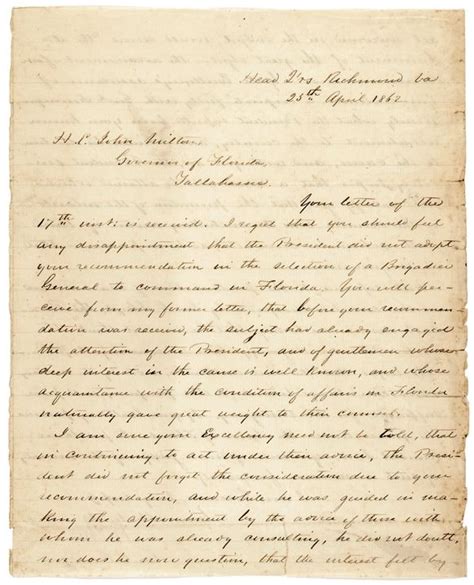 Head Qrs Richmond Va
25th April 1862
H. E. John Milton
Governor of Florida,
Tallahassee.
Your letter of the
17th inst: is received. I regret that you should feel
any disappointment that the President did not adopt
your recommendation in the selection of a Brigadier
General to command in Florida. You will per-
ceive from my former letter, that before your recommen-
dation was received, the subject had already engaged
the attention of the President, and of gentlemen whose
deep interest in the cause is well known, and whose
acquaintance with the condition of affairs in Florida
naturally gave great weight to their counsel.
I am sure your Excellency need not be told, that
in continuing to act under their advice, the Presi-
dent did not forget the consideration due to your
recommendation, and while he was guided in ma-
king the appointment by the advice of those with
whom he was already consulting, he did not doubt,
nor does he now question, that the interest felt by